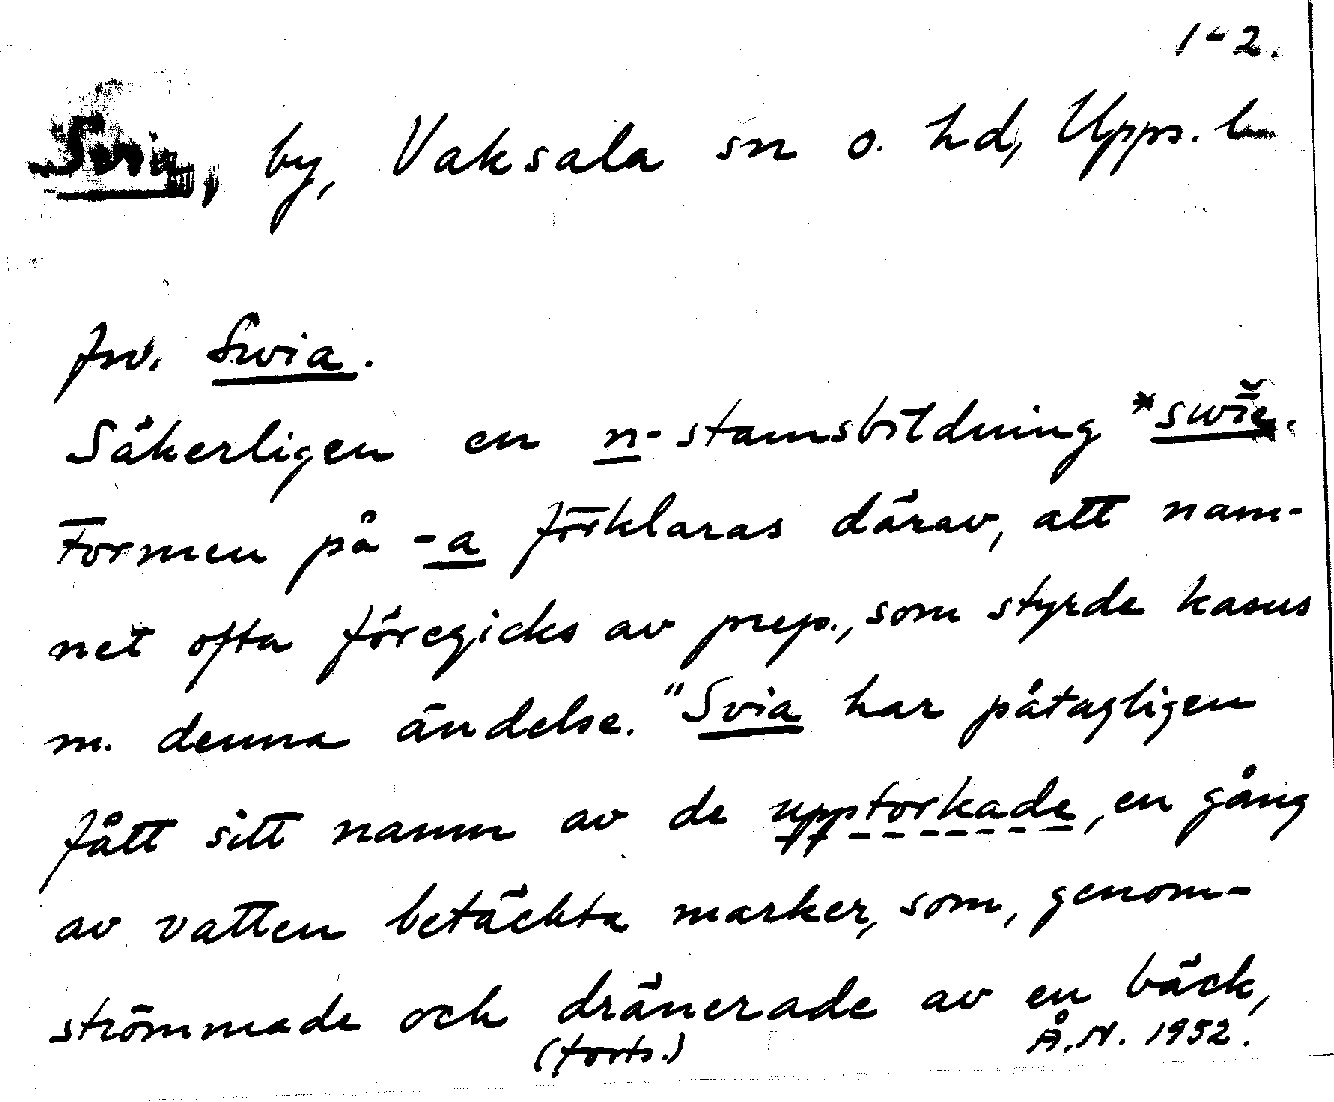 1-2.
Svia, by, Vaksala sn o. hd, Upps. l
fsv. Swia.
Säkerligen en n-stamsbildning *swīe.
Formen på -a förklaras därav, att nam-
net ofta föregicks av prep., som styrde kasus
m. denna ändelse. "Svia har påtagligen
fått sitt namn av de upptorkade, en gång
av vatten betäckta marker, som, genom-
strömmade och dränerade av en bäck,
(forts.) Å.N. 1952.